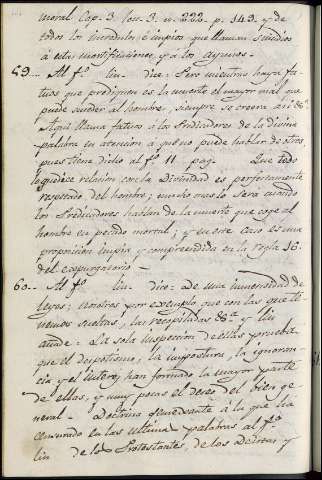 moral Cap. 3. lec. 3. n. 222. p. 143. y de
todos los incredulos, é impios que llaman suicidios
á estas mortificaciones, y á los ayunos. -
59... Al fº lin. dice: Pero mientras haya fa-
tuos que prediquen es la muerte el mayor mal que
puede suceder al hombre, siempre se creera así &ª
Aqui llama fatuos á los Predicadores de la divina
palabra en atención á que no puede hablar de otros
pues tiene dicho al fº 11. pag. Que todo
lo que dice relacion con la Divinidad es perfectamente
respetado del hombre; mucho mas lo sera cuando
los Predicadores hablan de la muerte que coge al
hombre en pecado mortal; y en este caso es una
proposicion impia y comprendida en la regla 16
del expurgatorio -
60... Al fº lin. dice: De una inmensidad de
leyes; nosotros por exemplo, que con las que te-
nemos sueltas, las recopiladas &ª y lin
añade: La sola inspeccion de ellas prueba
que el despotismo, la impostura, la ignoran-
cia y el interes han formado la mayor parte
de ellas, y muy pocas el deseo del bien ge-
neral - Doctrina semejante á la que ha
censurado en las ultimas palabras al fº
lin de los Protestantes, de los Ateistas y